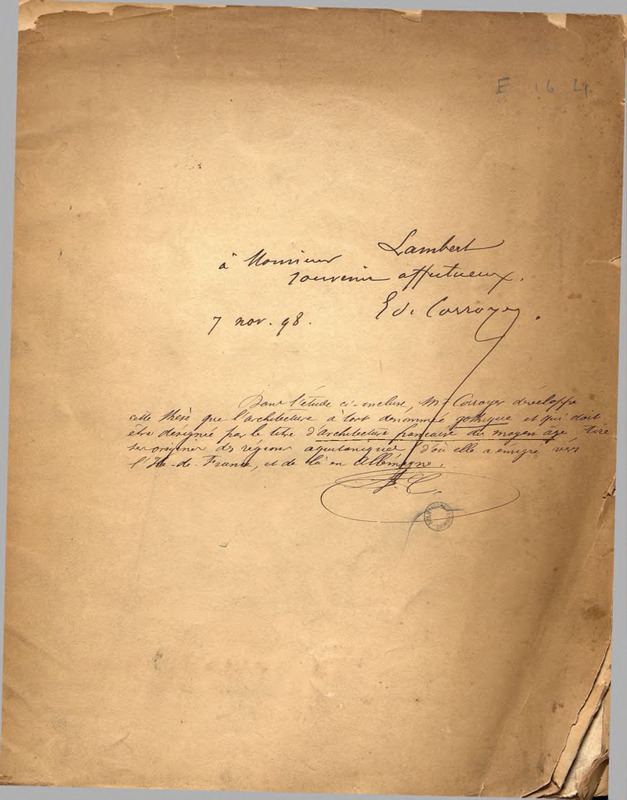 E 16 L4.
à Monsieur Lambert
souvenir affectueux.
Ed. Corroyer.
7 nov. 98.
Dans l'étude ci-incluse, Mr Corroyer développe
cette thèse que l'architecture à tort dénommée gothique et qui doit
être désignée par le titre d'architecture française du moyen âge, tire
ses origines des régions aquitaniques, d'où elle a émigré vers
l'Ile-de-France, et de là en Allemagne.